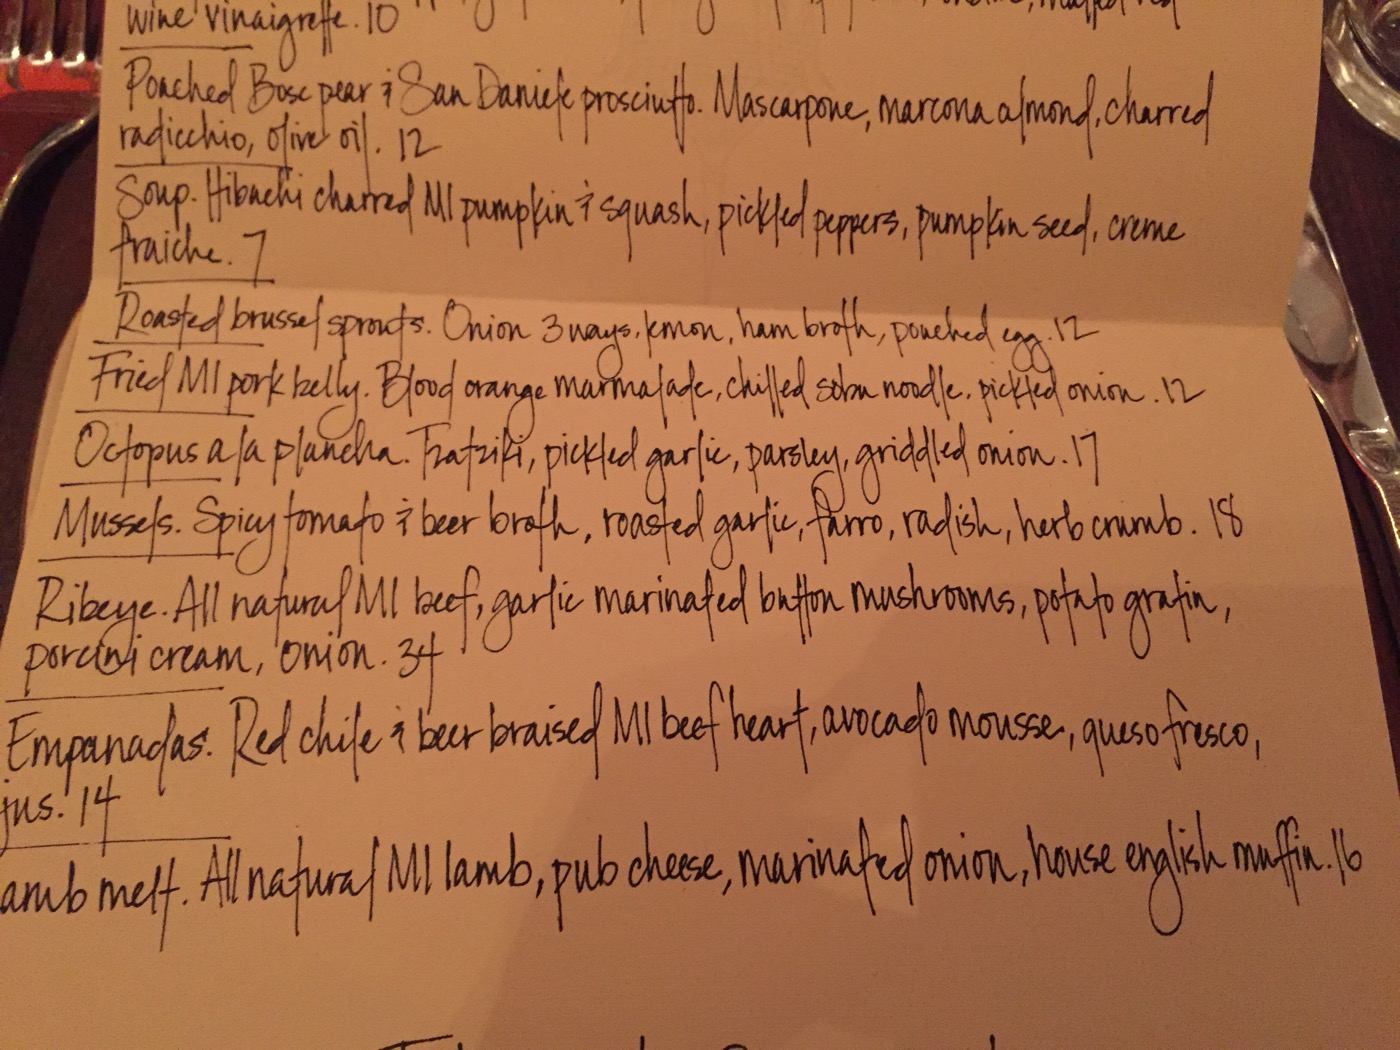 wine vinaigrette. 10
Poached Bosc pear & San Daniele prosciutto. Mascarpone, marcona almond, charred
radicchio, olive oil. 12
Soup. Hibachi charred MI pumpkin & squash, pickled peppers, pumpkin seed, creme
fraiche. 7
Roasted brussel sprouts. Onion 3 ways, lemon, ham broth, poached egg. 12
Fried MI pork belly. Blood orange marmalade, chilled soba noodle, pickled onion. 12
Octopus a la plancha. Tzatziki, pickled garlic, parsley, griddled onion. 17
Mussels. Spicy tomato & beer broth, roasted garlic, farro, radish, herb crumb. 18
Ribeye. All natural MI beef, garlic marinated button mushrooms, potato gratin,
porcini cream, onion. 34
Empanadas. Red chile & beer braised MI beef heart, avocado mousse, queso fresco,
jus. 14
amb melt. All natural MI lamb, pub cheese, marinated onion, house english muffin. 16